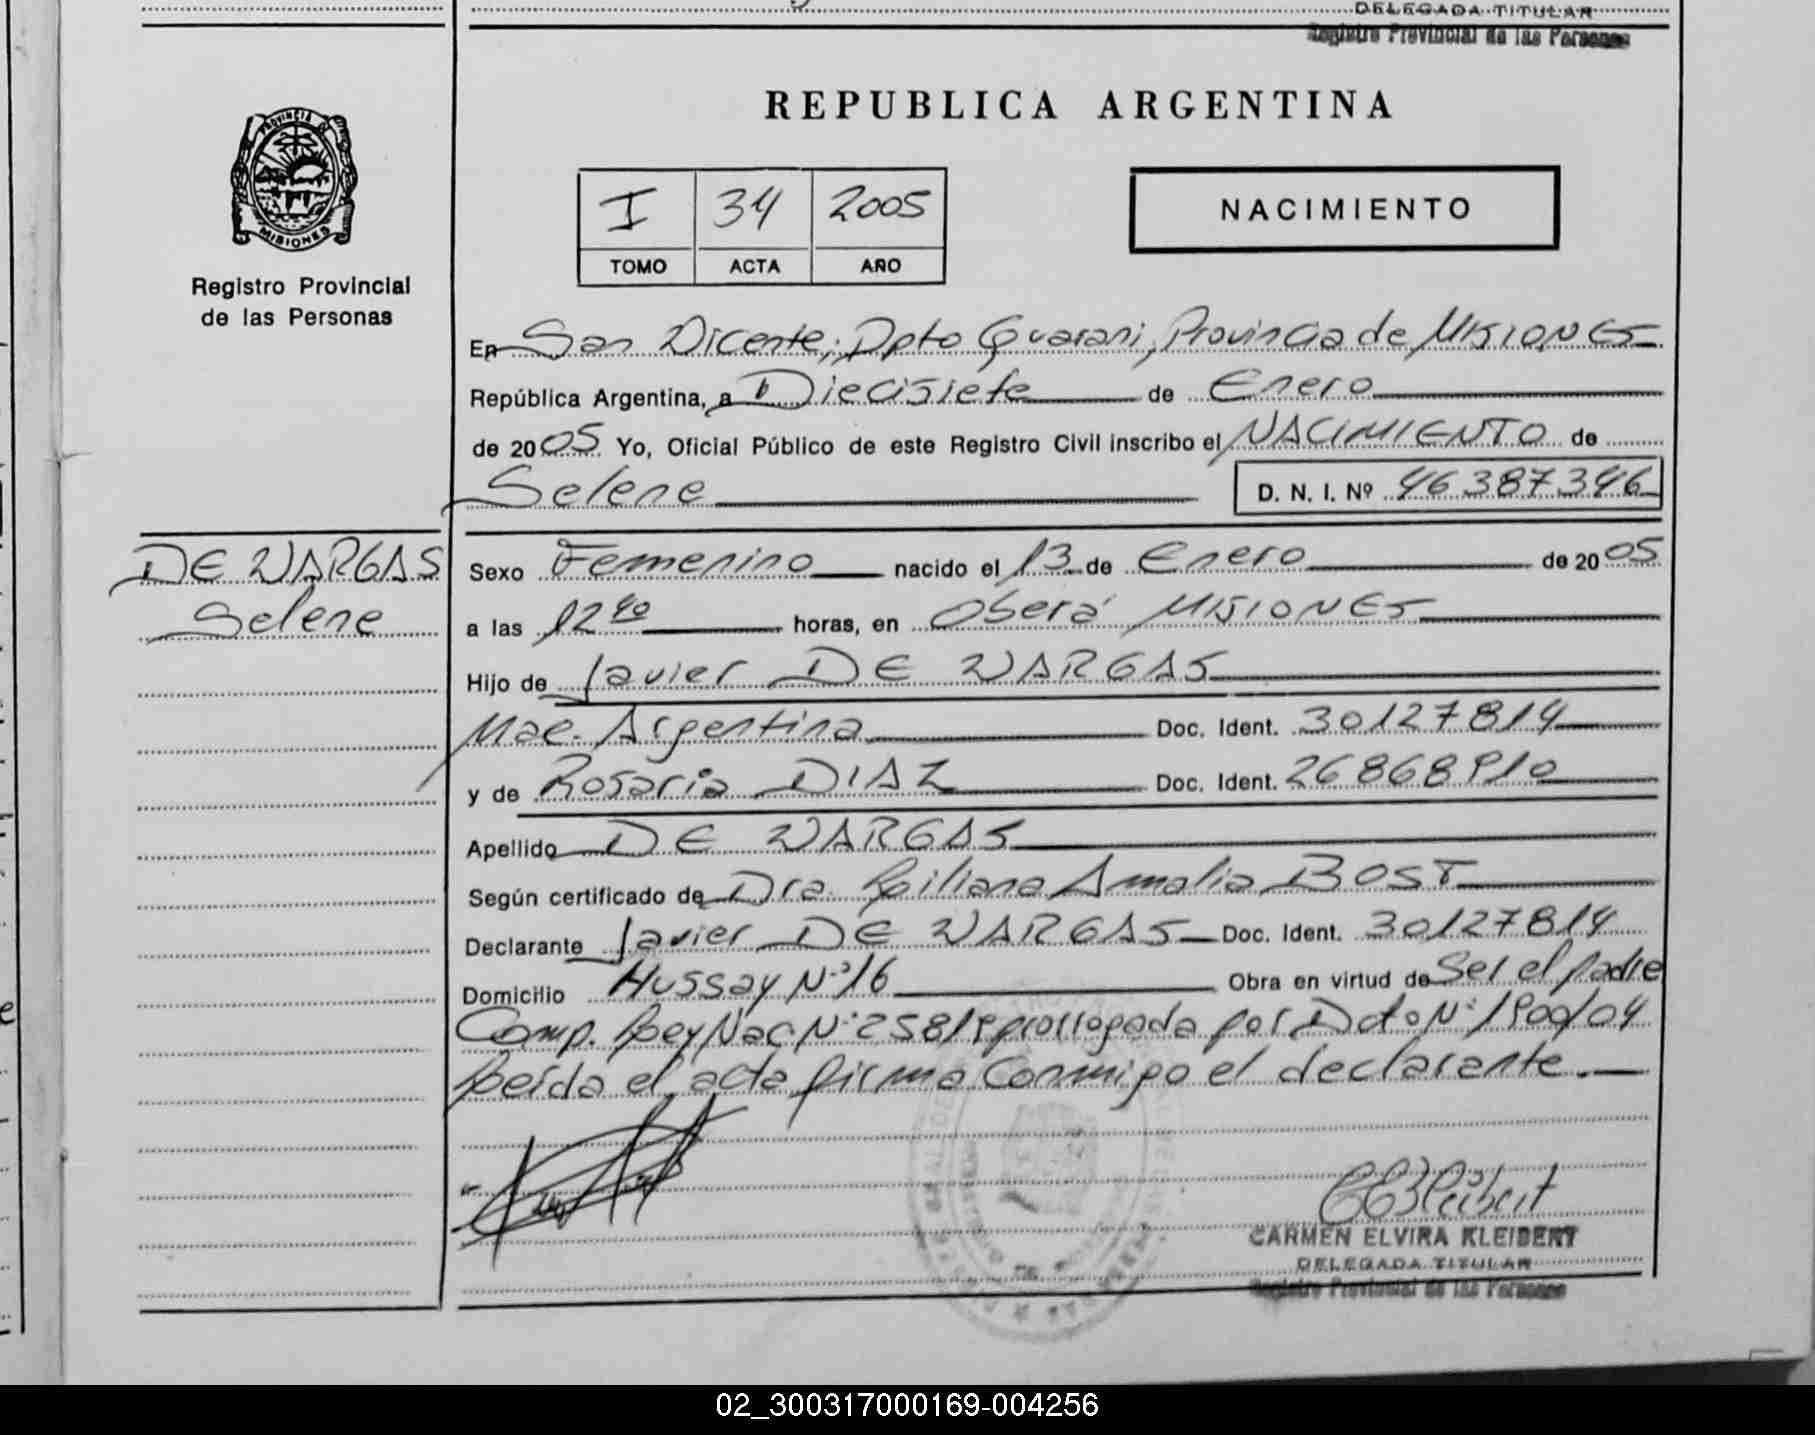 DELEGADA TITULAR
Registro Provincial de las Personas
REPUBLICA ARGENTINA
PROVINCIA DE
MISIONES
I 34 2005
TOMO ACTA AÑO
NACIMIENTO
Registro Provincial
de las Personas
En San Vicente, Dpto Guarani, Provincia de MISIONES
República Argentina, a Diecisiete de Enero
de 2005 Yo, Oficial Público de este Registro Civil inscribo el NACIMIENTO de
Selene D. N. I. Nº 46387346
DE VARGAS
Selene
Sexo Femenino nacido el 13 de Enero de 2005
a las 12 40 horas, en Oberá MISIONES
Hijo de Javier DE VARGAS
Nac. Argentina Doc. Ident. 30127814
y de Rosaria DIAZ Doc. Ident. 26868910
Apellido DE VARGAS
Según certificado de Dra. Liliana Amalia BOST
Declarante Javier DE VARGAS Doc. Ident. 30127814
Domicilio Hussay Nº 16 Obra en virtud de Ser el padre
Comp. Ley Nac Nº 25819 prorrogada por Dcto Nº 1900/04
Leída el acta firma Conmigo el declarante.
CARMEN ELVIRA KLEIBERT
DELEGADA TITULAR
Registro Provincial de las Personas
02_300317000169-004256